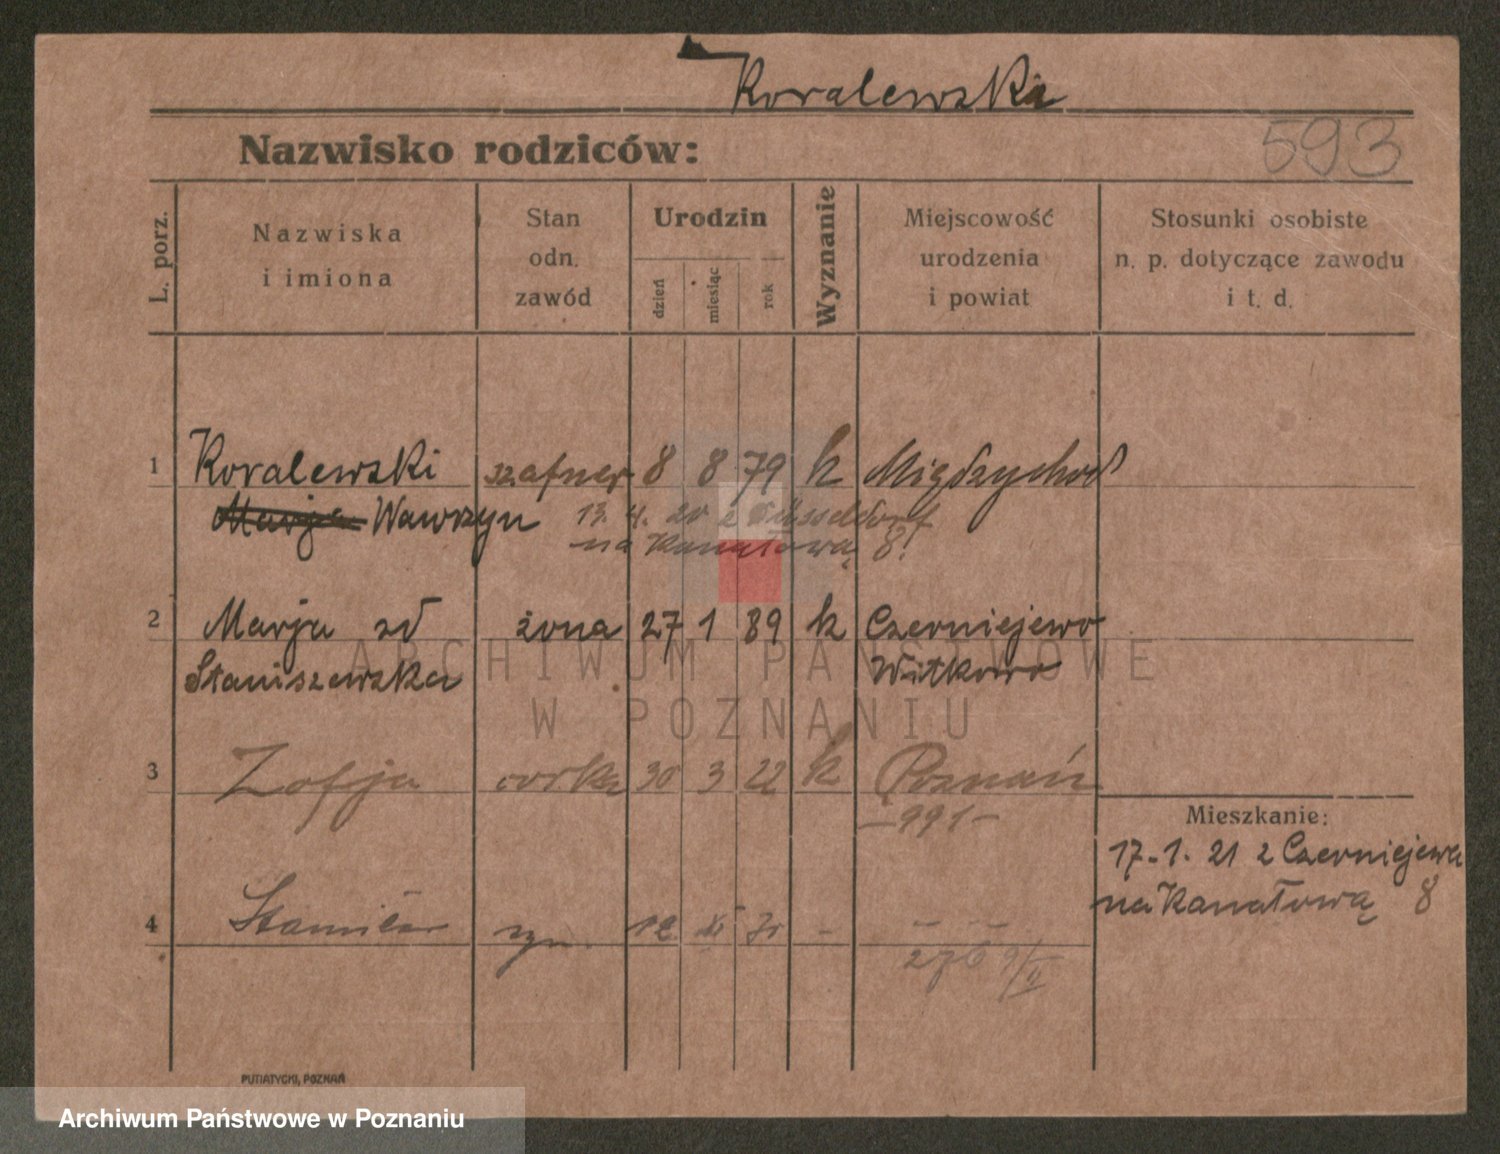 Koralewski
Nazwisko rodziców:
593
L. porz.
Nazwiska
i imiona
Stan
odn.
zawód
Urodzin
dzień
miesiąc
rok
Wyznanie
Miejscowość
urodzenia
i powiat
Stosunki osobiste
n. p. dotyczące zawodu
i t. d.
1 Koralewski szafner 8 8 79 k Międzychod
Marja Wawrzyn 13. 4. 20 z Düsseldorf
na Kanałową 8!
2 Marja zd żona 27 1 89 k Czerniejewo
Staniszewska Witkowo
ARCHIWUM PAŃSTWOWE
W POZNANIU
3 Zofja corka 30 3 22 k Poznań
-991-
Mieszkanie:
17.1.21 z Czerniejewa
na Kanałową 8
4 Stanisław syn. - - -
PUTIATYCKI, POZNAŃ
Archiwum Państwowe w Poznaniu